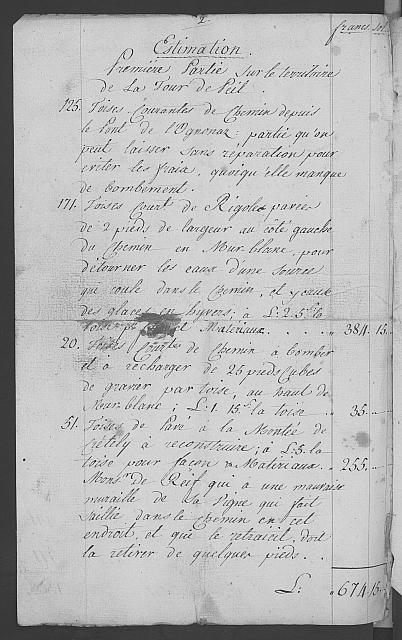 2
francs. sol.
Estimation.
Première Partie sur le territoire
de La Tour de Peil.
125. Toises Courantes de Chemin depuis
le Pont de l'Ognonaz; partie qu'on
peut laisser sans réparation pour
éviter les fraix, quoiqu'elle manque
de bombement.
171. Toises Court de Rigoles pavées
de 2 pieds de largeur au côté gauche
du Chemin en Mur blanc, pour
détourner les eaux d'une source
qui coule dans le Chemin, et y cause
des glaces en hyvers; à L: 2. 5 s la
toise Matériaux . . . " " 384. 15.
20. Toises Court de Chemin à bomber
et à recharger de 25 pieds Cubes
de gravier par toise, au haut de
Mur blanc; L. 1. 15 s la toise . . " 35. "
51. Toises de Pavé à la Montée de
à reconstruire; à L: 5. la
toise pour façon & Matériaux . " 255. "
Monsr. de Reif qui à une mauvaise
muraille de sa Vigne qui fait
saillie dans le Chemin en cet
endroit, et qui le retraicit, doit
la retirer de quelques pieds. . .
L: " 674. 15.